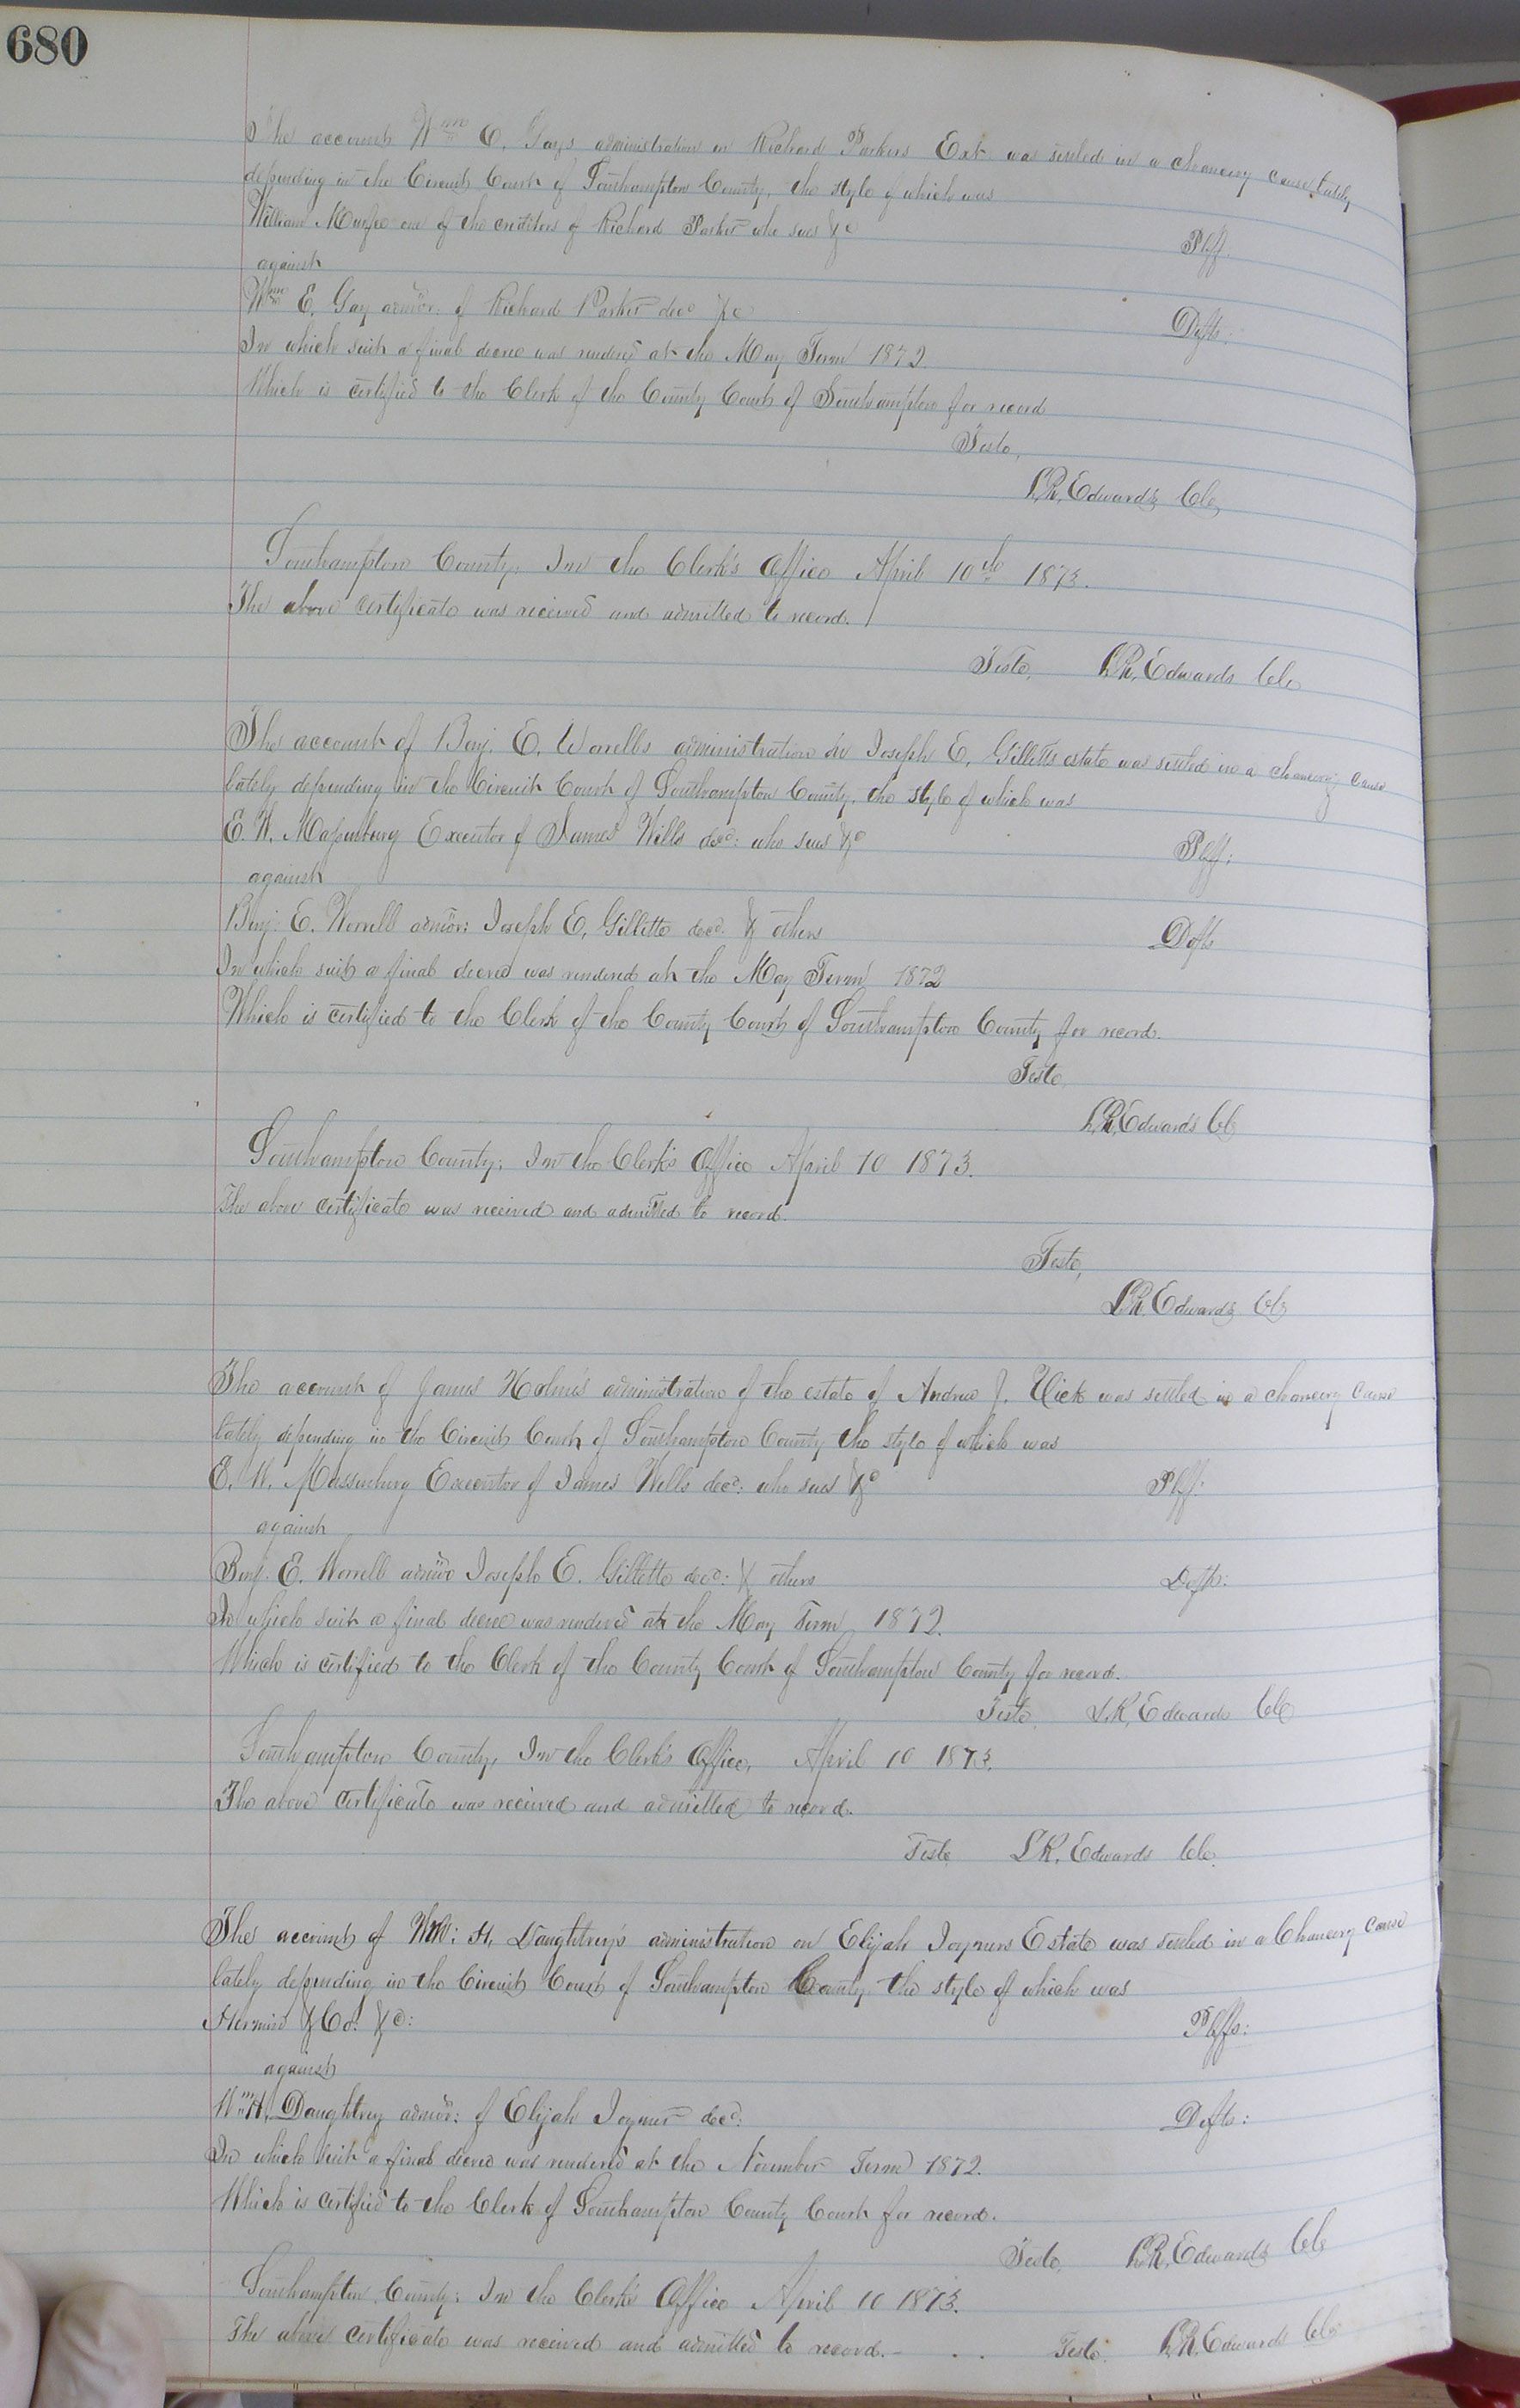 680
The account Wm E. Gay's administration on Richard Parkers Est. was settled in a chancery cause lately
depending in the Circuit Court of Southampton County, the style of which was
William Murfee one of the creditors of Richard Parker who sues &c Plff.
against
Wm E. Gay admor: of Richard Parker decd &c Defts:
In which suit a final decree was rendered at the May Term 1872.
Which is certified to the Clerk of the County Court of Southampton for record
Teste,
L.R. Edwards Clk
Southampton County, In the Clerk's Office April 10th 1873.
The above certificate was received and admitted to record.
Teste, L.R. Edwards Clk
The account of Benj. E. Worrells administration on Joseph E. Gilletts estate was settled in a chancery cause
lately depending in the Circuit Court of Southampton County, the style of which was
E. W. Massenburg Executor of James Wills decd: who sues &c Plff:
against
Benj. E. Worrell admor: Joseph E. Gillette decd. & others Defts
In which suit a final decree was rendered at the May Term 1872
Which is certified to the Clerk of the County Court of Southampton County for record.
Teste,
L.R. Edwards Clk
Southampton County; In the Clerk's Office April 10 1873.
The above certificate was received and admitted to record.
Teste,
L.R. Edwards Clk
The account of James Holmes administration of the estate of Andrew J. was settled in a chancery cause
lately depending in the Circuit Court of Southampton County the style of which was
E. W. Massenburg Executor of James Wills decd: who sues &c Plff:
against
Benj. E. Worrell admor Joseph E. Gillette decd: & others Defts:
In which suit a final decree was rendered at the May Term, 1872.
Which is certified to the Clerk of the County Court of Southampton County for record.
Teste, L.R. Edwards Clk
Southampton County, In the Clerk's Office, April 10 1873.
The above certificate was received and admitted to record.
Teste L.R. Edwards Clk.
The account of Wm: H. Daughtrey's administration on Elijah Joyners Estate was settled in a Chancery Cause
lately depending in the Circuit Court of Southampton County the style of which was
& Co. &c: Plffs:
against
Wm H. Daughtrey admor: of Elijah Joyner decd: Defts:
In which suit a final decree was rendered at the November Term 1872.
Which is certified to the Clerk of Southampton County Court for record.
Teste, L.R. Edwards Clk
Southampton County: In the Clerk's Office April 10 1873.
The above certificate was received and admitted to record.- Teste. L.R. Edwards Clk